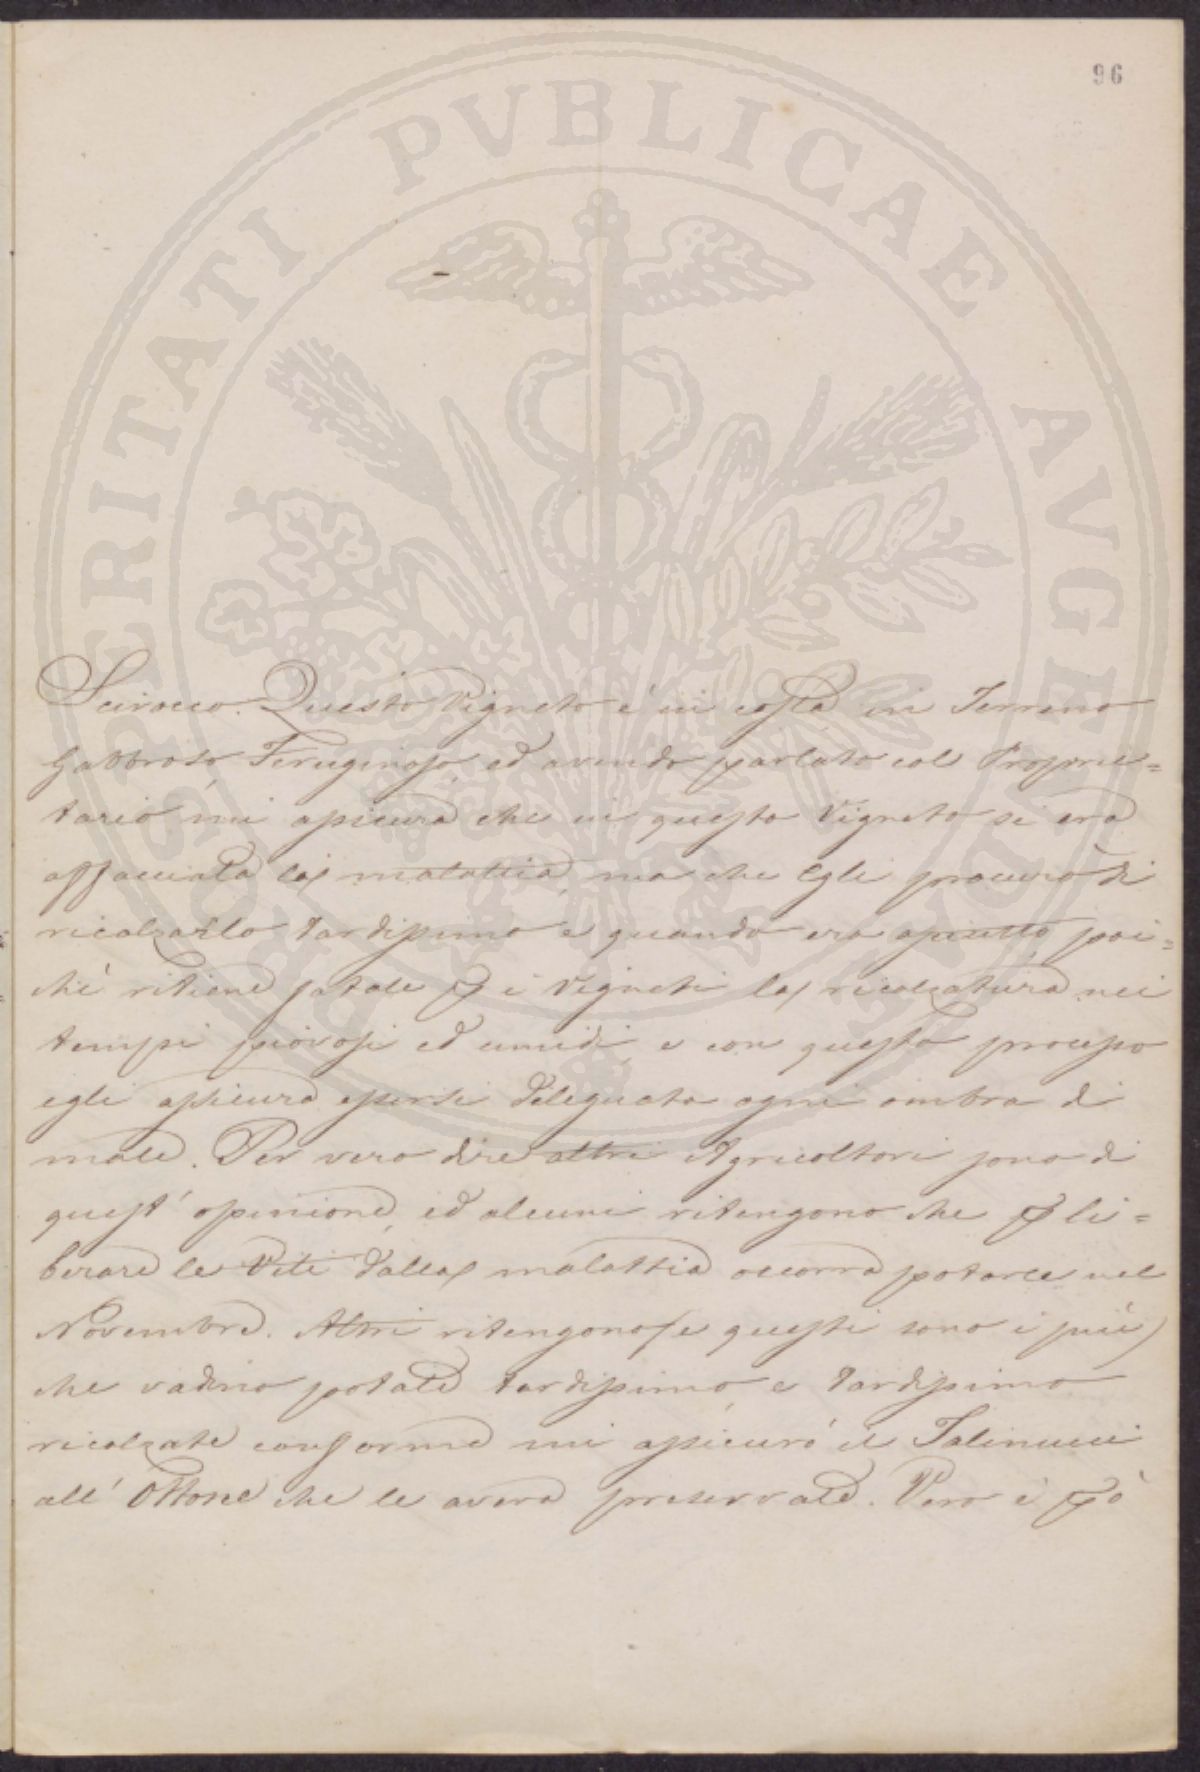 96
PROSPERITATI PVBLICAE AVGENDAE
Scirocco. Questo Vigneto è in costa in Terreno
Gabbroso Feruginoso, ed avendo parlato col Proprie=
tario mi assicura che in questo Vigneto si era
affacciata la malattia, ma che Egli procurò di
ricalzarlo tardissimo e quando era asciutto poi=
ché ritiene fatale p i Vigneti la ricalzatura nei
tempi piovosi ed umidi, e con questo processo
egli assicura essersi dileguata ogni ombra di
male. Per vero dire altri Agricoltori sono di
quest' opinione, ed alcuni ritengono che p li=
berare le Viti dalla malattia occorra potarle nel
Novembre. Altri ritengono (e questi sono i più)
che vadino potate tardissimo, e tardissimo
ricalzate conforme mi assicurò il Talinucci
all' Ottone che le aveva preservate. Vero è pò